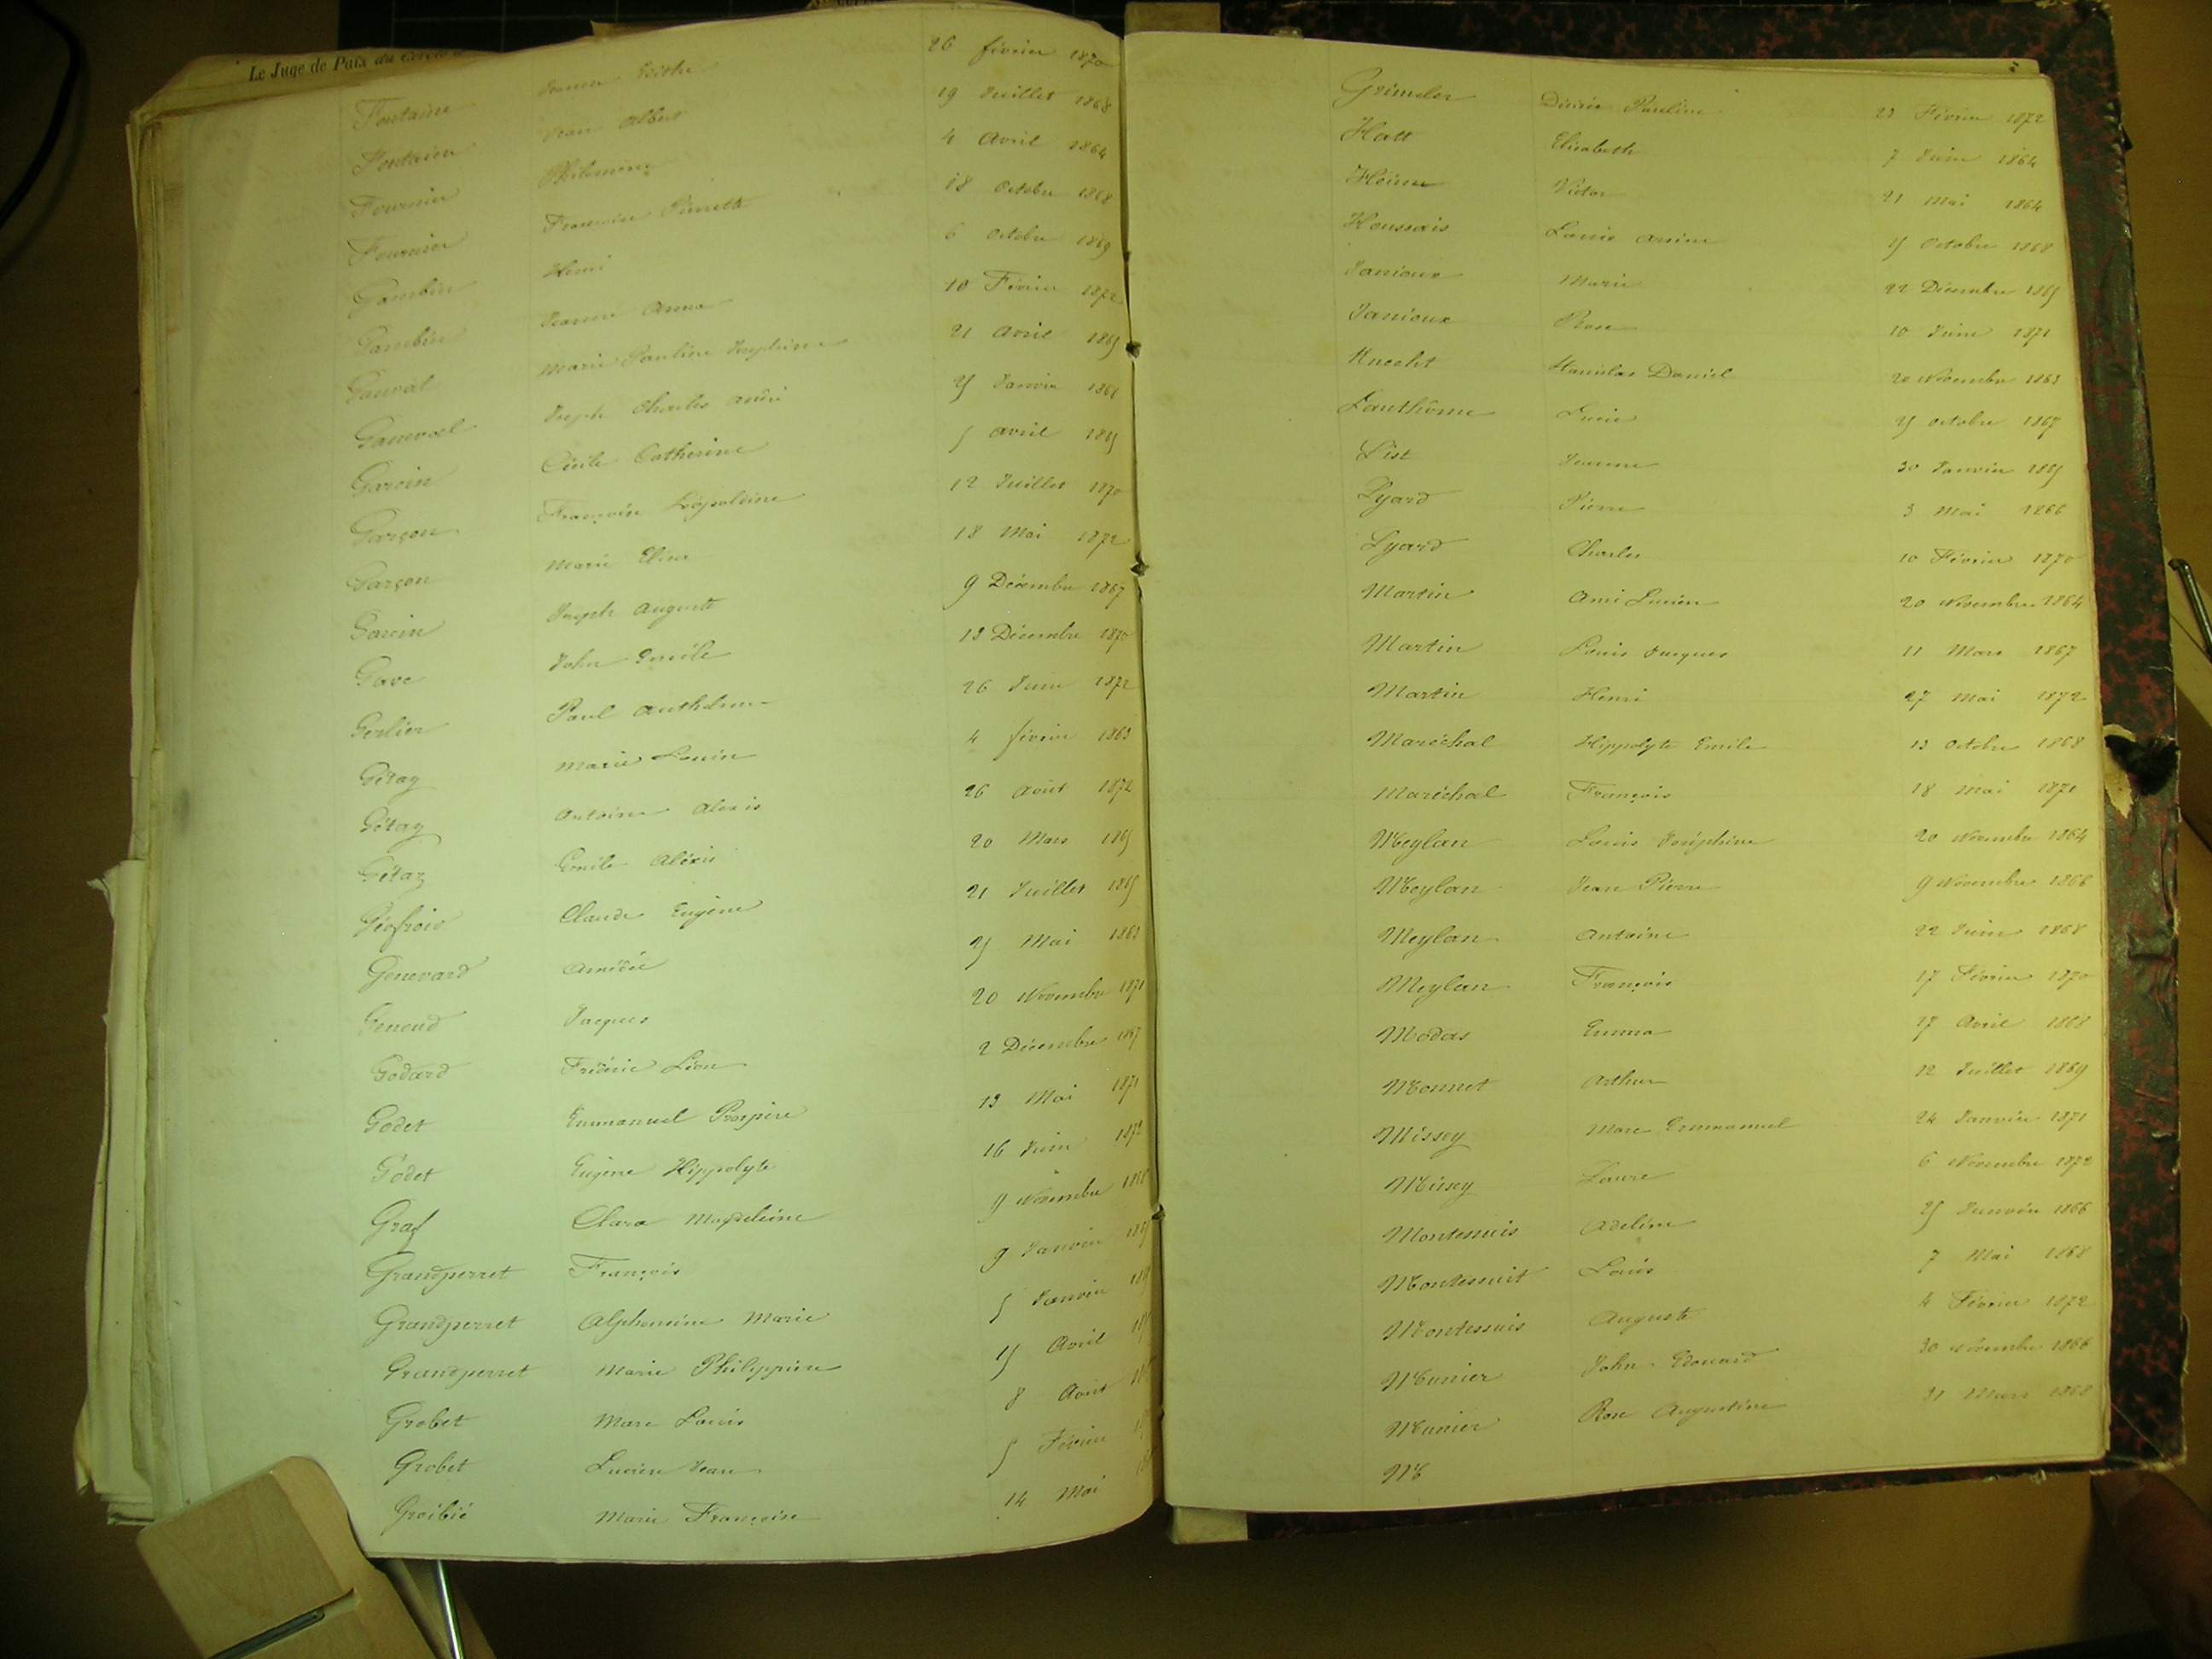 Le Juge de Paix du Cercle
Fontaine Jeanne Edithe 26 février 1870
Fontaine Jean Albert 19 Juillet 1868
Fournier Philomène 4 Avril 1864
Fournier Françoise Pierrette 18 Octobre 1868
Gambin Henri 6 Octobre 1869
Gambin Jeanne Anna 10 Février 1872
Ganval Marie Pauline Joséphine 21 Avril
Joseph Charles André Janvier
Garcin Cécile Catherine avril
Garçon Françoise Léopoldine 12 Juillet 1870
Garçon Marie Elisa 18 Mai 1872
Garcin Joseph Auguste 9 Décembre 1867
Gave John Emile 13 Décembre 1870
Gerlier Paul Anthelme 26 Juin 1872
Gétaz Marie Louise 4 février 1863
Gétaz Antoine Alexis 26 Août 1872
Gétaz Emile Aléxis 20 Mars
Géofroid Claude Eugène 21 Juillet
Genevard Amédée Mai
Genoud Jacques 20 Novembre 1871
Godard Frédéric Léon 2 Décembre 1867
Godet Emmanuel Prospère 13 Mai 1871
Godet Eugène Hippolyte 16 Juin 1872
Graf Clara Magdeleine 9 Novembre
Grandperret François 9 Janvier
Grandperret Alphonsine Marie 5 Janvier
Grandperret Marie Philippine Avril
Grobet Marc Louis 8 Août
Grobet Lucien Jean 5 Février
Groibié Marie Françoise 14 Mai
Grimeler Désirée Pauline Février 1872
Hatt Elisabeth 7 Juin 1864
Heim Victor 21 Mai 1864
Houssais Louis Octobre 1868
Janioux Marie 22 Décembre
Janioux Rose 10 Juin 1871
Knecht Stanislas Daniel 20 Novembre 1863
Lanthôme Lucie Octobre 1867
List Jeanne 30 Janvier
Lyard Pierre 3 Mai 1866
Lyard Charles 10 Février 1870
Martin Ami Lucien 20 Novembre 1864
Martin Louis Jacques 11 Mars 1867
Martin Henri 27 Mai 1872
Maréchal Hippolyte Emile 13 Octobre 1868
Maréchal François 18 Mai 1871
Meylan Louis Joséphine 20 Novembre 1864
Meylan Jean Pierre 9 Novembre 1866
Meylan Antoine 22 Juin 1868
Meylan François 17 Février 1870
Modas Emma 17 Avril 1868
Monnet Arthur 12 Juillet 1869
Missey Marc Emmanuel 24 Janvier 1871
Missey Laure 6 Novembre 1872
Montessuis Adeline Janvier 1866
Montessuit Louis 7 Mai 1868
Montessuis Auguste 4 Février 1872
Munier John Edouard 30 Novembre 1866
Munier Rose Augustine 31 Mars 1868
M